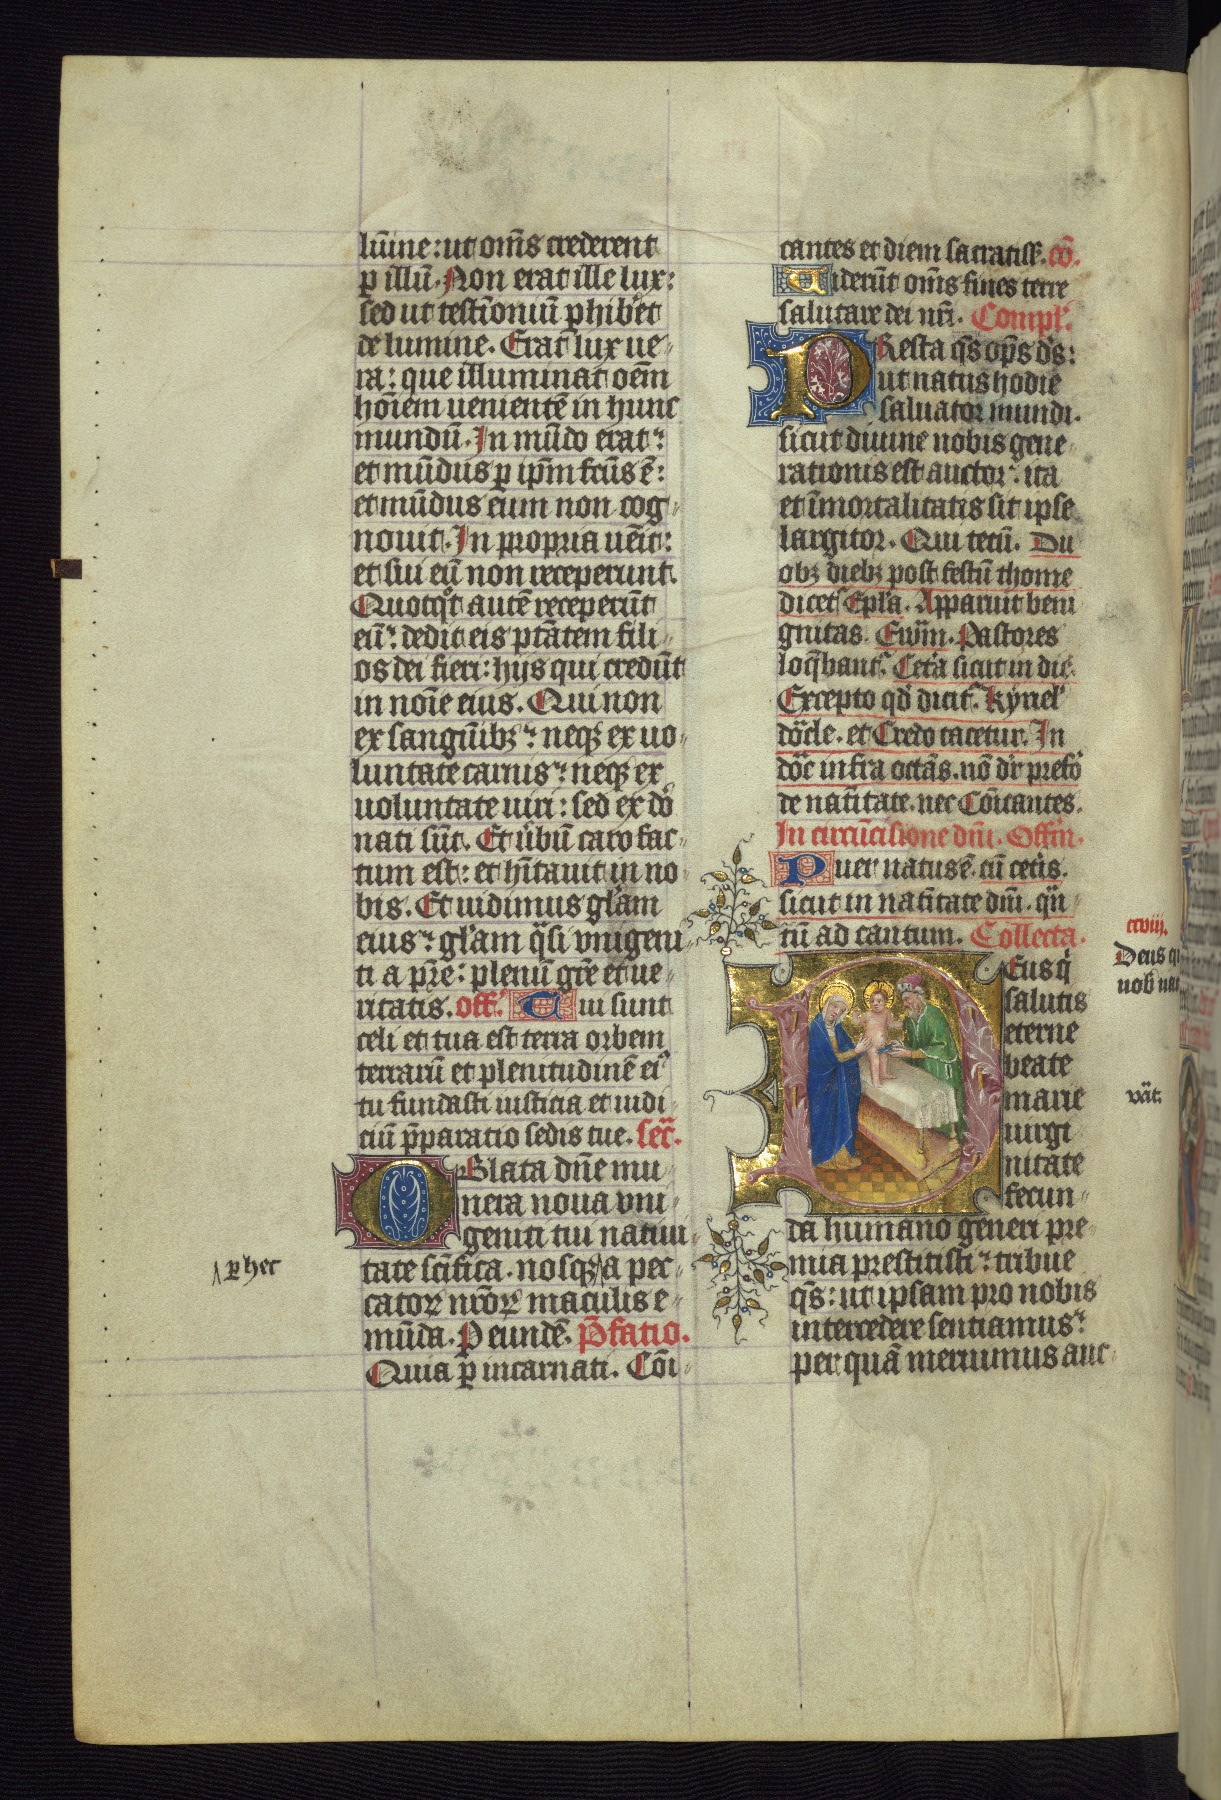 lūine: ut om̄s crederent
ꝑ illū. Non erat ille lux:
sed ut testīoniū ꝑhib̄et
de lumine. Erat lux ue-
ra: que illuminat oēm
hoīem uenientē in hunc
mundū. In mūdo erat:
et mūdus ꝑ ip̄m fc̄us ē:
et mūdus eum non cog-
nouit. In propria uēit:
et sui eū non receperunt.
Quotqͦt autē receperūt
eū: dedit eis ptāatem fili-
os dei fieri: hijs qui credūt
in noīe eius. Qui non
ex sanguīibꝫ: neqꝫ ex uo-
luntate carnis: neqꝫ ex
uoluntate uiri: sed ex dō
nati sūt. Et u̇bū caro fac-
tum est: et hītauit in no-
bis. Et uidimus gl̄am
eius: gl̄am q̄si vnigeni-
ti a pr̄e: plenū gr̄e et ue-
ritatis. off. Tui sunt
celi et tua est terra orbem
terrarū et plenitudinē eiꝰ
tu fundasti iusticia et iudi-
ciū p̄paratio sedis tue. sec̄.
OBlata dn̄e mu-
nera noua vni-
geniti tui natiui-
tate sc̄ifica. nosqꝫ a pec-
catoꝝ nr̄oꝝ maculis e-
mūda. P eundē. P̄fatio.
Quia ꝑ incarnati. Cōi-
ꝑ hec
cantes et diem sacratiss. cō.
Uiderūt om̄s fines terre
salutare dei nr̄i. Compl̄.
PResta q̄s op̄s ds̄:
ut natus hodie
saluator mundi.
sicut diuine nobis gene-
rationis est auctor: ita
et īmortalitatis sit ipse
largitor. Qui tecū. Du
obꝫ diebꝫ post festū thome
dicet᷑ Ep̄la. Apparuit beni
gnitas. Ewm̄. Pastores
loq̄bant᷑. Cet̄a sicut in die.
Excepto qd̄ dicit᷑. Kyriel̄
dōcle. et Credo tacetur. In
dōc infra octās. nō dr̄ prefō
de natītate. nec Cōicantes.
In circūcisione dn̄i. Offm̄.
Puer natus ē. cū cet̄is.
sicut in natītate dn̄i. qn̄
tū ad cantum. Collecta.
DEus q̄
salutis
eterne
beate
marie
uirgi
nitate
fecun-
da humano generi pre-
mia prestitisti: tribue
q̄s: ut ipsam pro nobis
intercedere sentiamus:
per quā meruimus auc-
ccviij.
Deus qi
nob̄ nas
vāt.